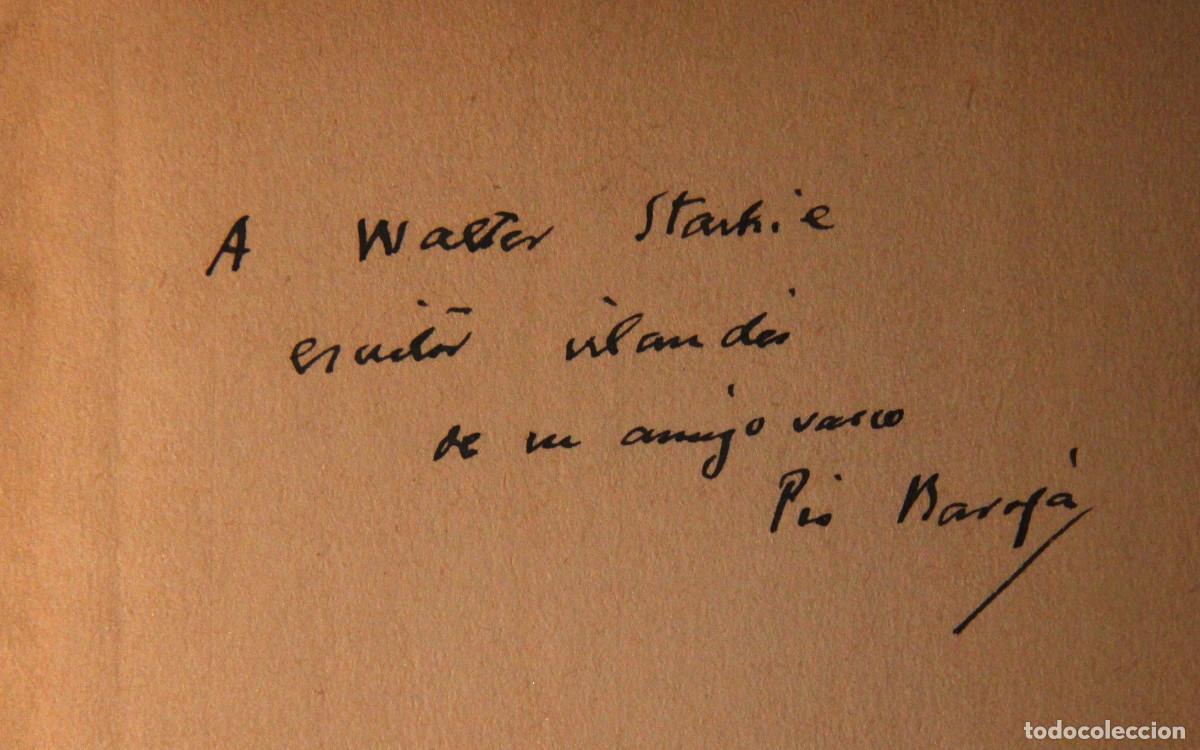 A Walter Starkie
escritor irlandés
de su amigo vasco
Pío Baroja
todocoleccion